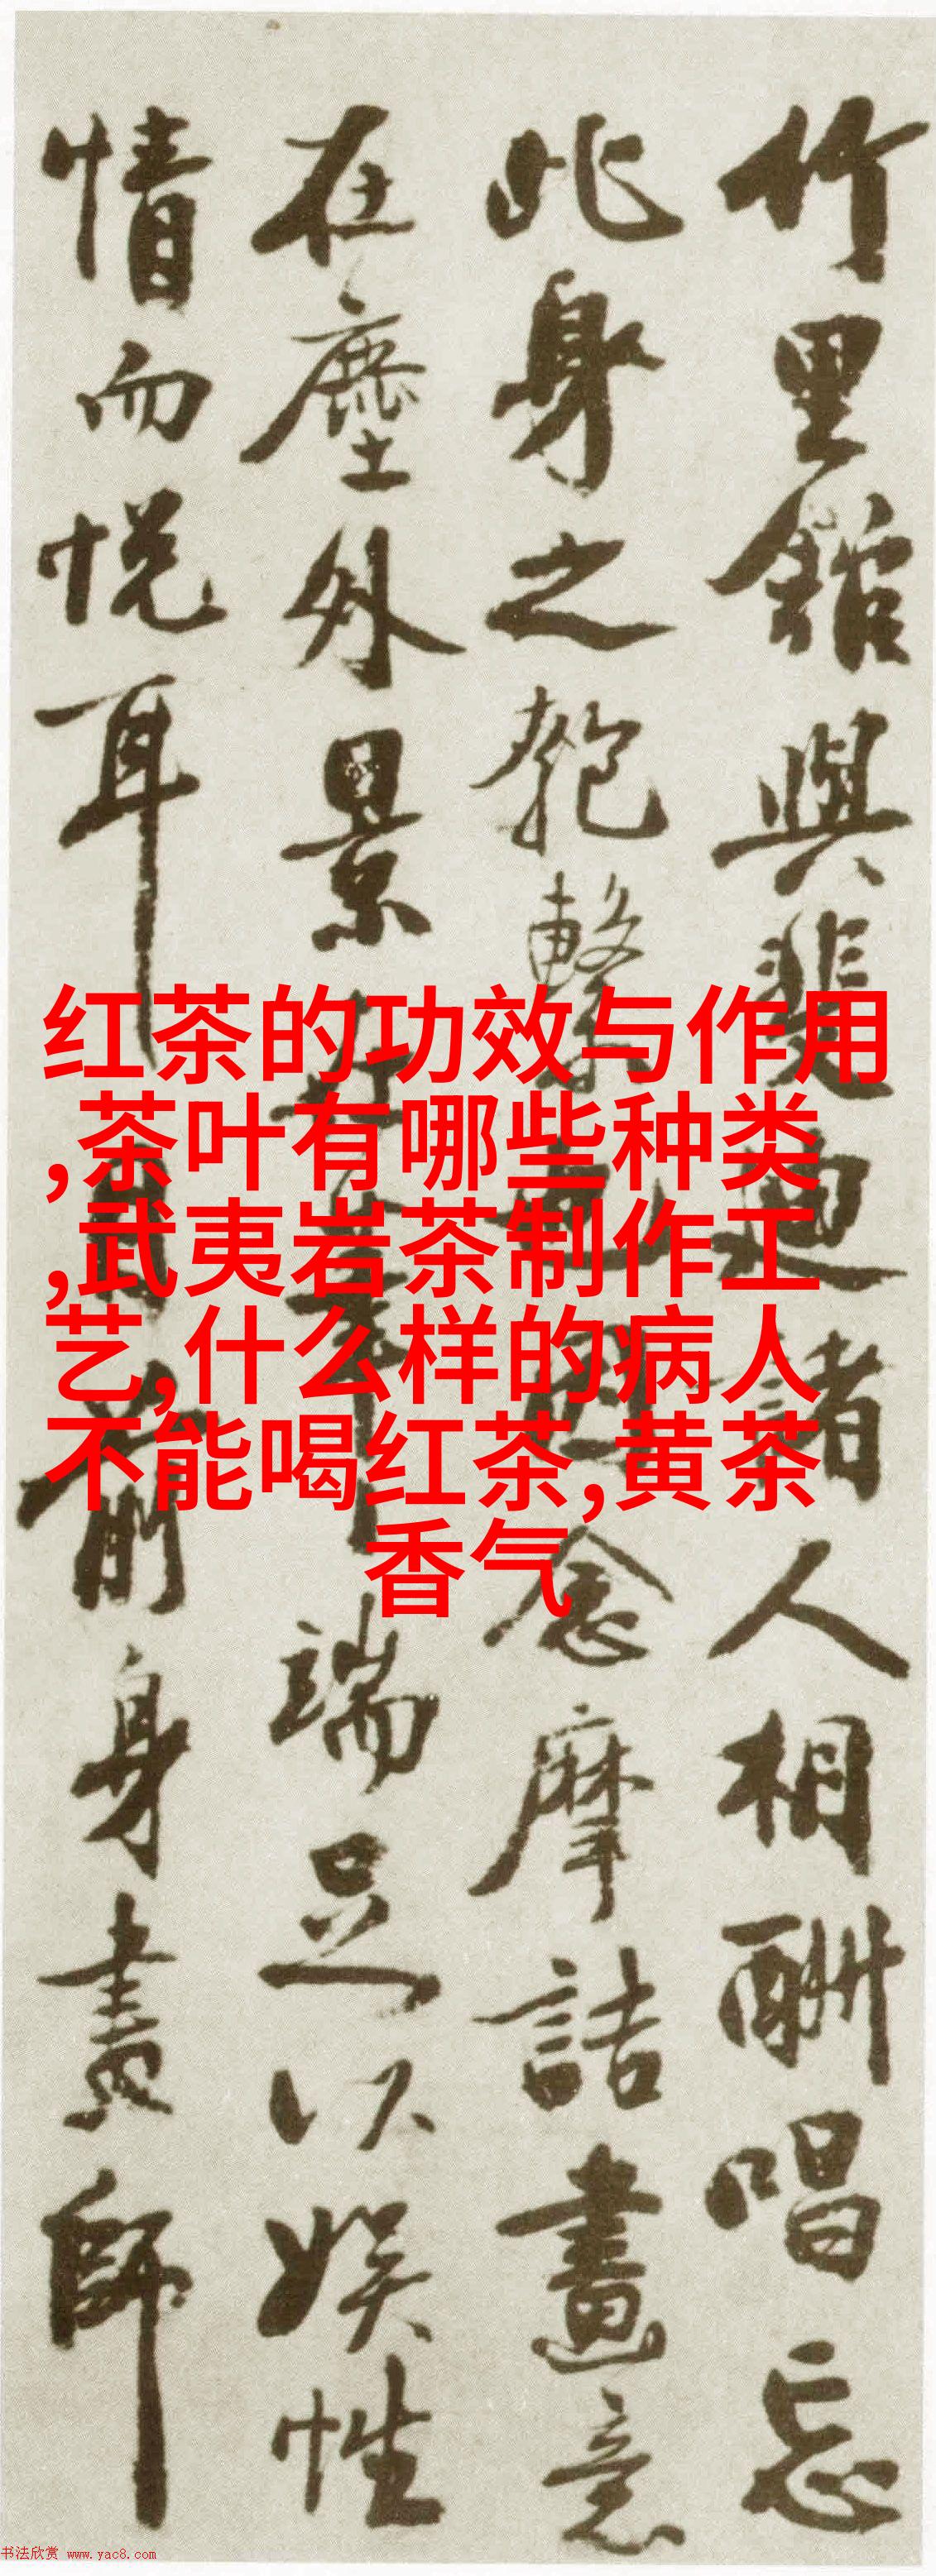 竹里舘與斐迪諸人相酬唱忘
此身之匏繫也因念摩詰畫意
在塵外景在筆端足以娛性
情而悅耳目前身畫師
红茶的功效与作用
,茶叶有哪些种类
,武夷岩茶制作工
艺,什么样的病人
不能喝红茶,黄茶
香气
书法欣赏 www.yac8.com